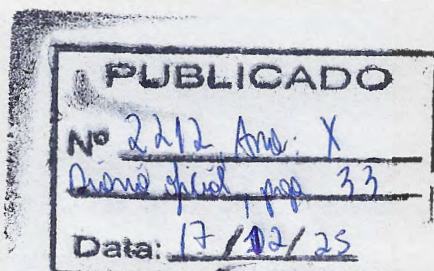 PUBLICADO
Nº 2212 Ano: X
Diário oficial, pág 33
Data: 17/12/25